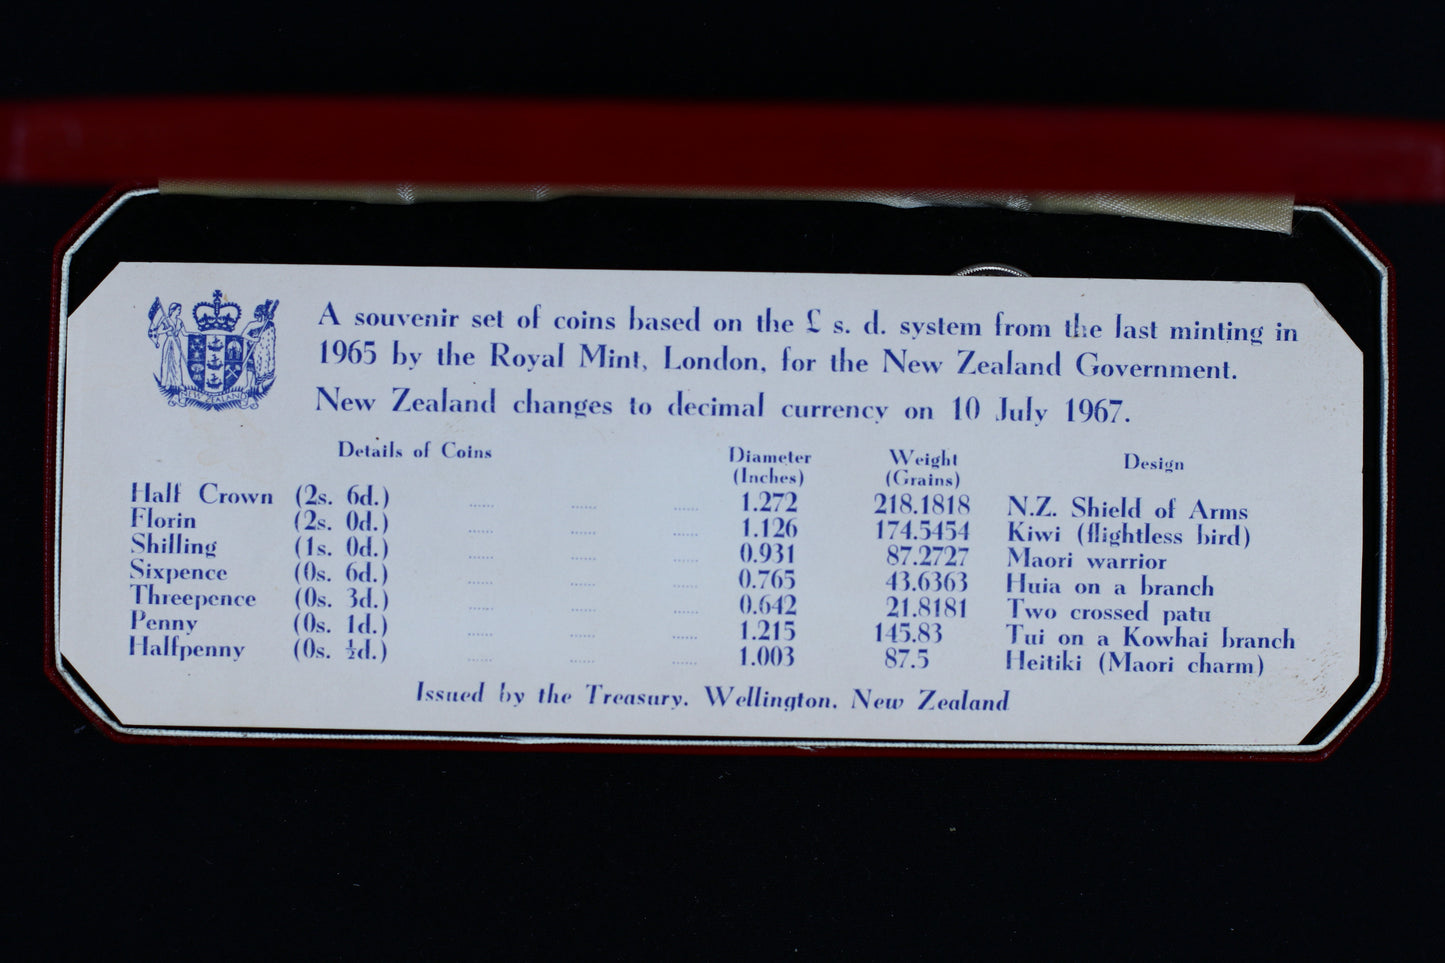 NEW ZEALAND
A souvenir set of coins based on the £ s. d. system from the last minting in
1965 by the Royal Mint, London, for the New Zealand Government.
New Zealand changes to decimal currency on 10 July 1967.
Details of Coins Diameter (Inches) Weight (Grains) Design
Half Crown (2s. 6d.) ...... ...... ...... 1.272 218.1818 N.Z. Shield of Arms
Florin (2s. 0d.) ...... ...... ...... 1.126 174.5454 Kiwi (flightless bird)
Shilling (1s. 0d.) ...... ...... ...... 0.931 87.2727 Maori warrior
Sixpence (0s. 6d.) ...... ...... ...... 0.765 43.6363 Huia on a branch
Threepence (0s. 3d.) ...... ...... ...... 0.642 21.8181 Two crossed patu
Penny (0s. 1d.) ...... ...... ...... 1.215 145.83 Tui on a Kowhai branch
Halfpenny (0s. ½d.) ...... ...... ...... 1.003 87.5 Heitiki (Maori charm)
Issued by the Treasury, Wellington, New Zealand